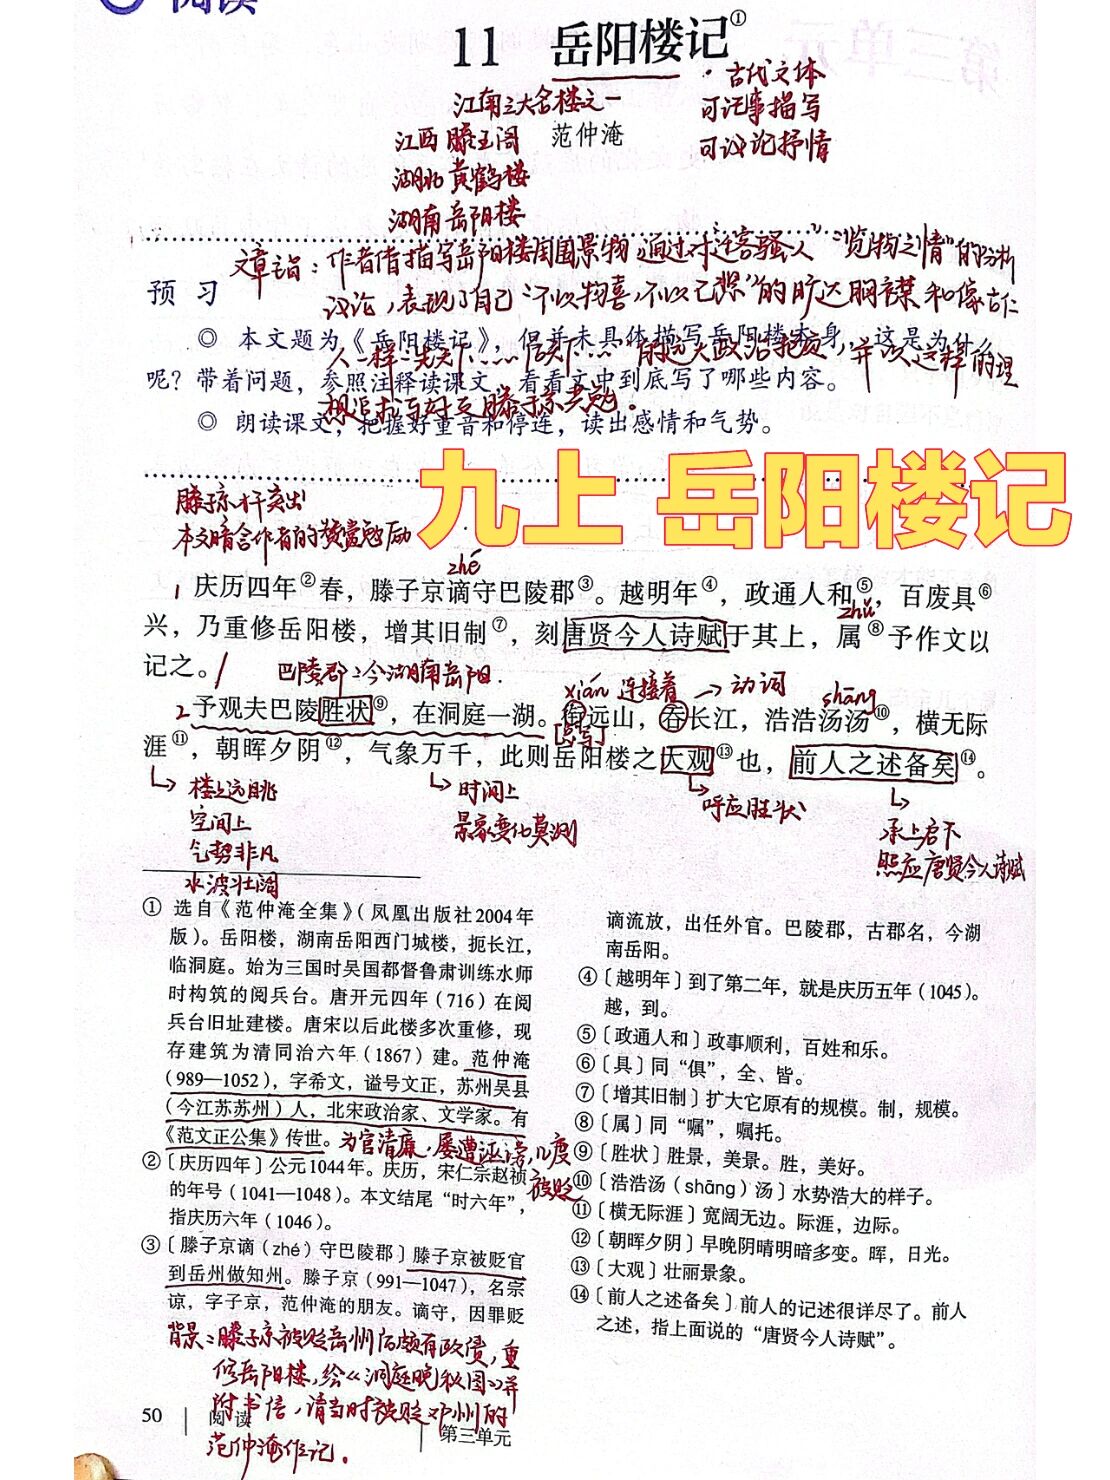 阅读
11 岳阳楼记①
·古代文体
可记事描写
可议论抒情
江南三大名楼之一
江西 滕王阁
范仲淹
湖北 黄鹤楼
湖南 岳阳楼
文章主旨：作者借描写岳阳楼周围景物，通过对迁客骚人“览物之情”的分析
议论，表现了自己“不以物喜，不以己悲”的旷达胸襟和像古仁
人一样“先天下……后天下……”的远大政治抱负，并以这样的理
想追求与好友滕子京共勉。
预 习
◎ 本文题为《岳阳楼记》，但并未具体描写岳阳楼本身，这是为什么
呢？带着问题，参照注释读课文，看看文中到底写了哪些内容。
◎ 朗读课文，把握好重音和停连，读出感情和气势。
九上 岳阳楼记
滕子京才突出
本文暗含作者的赞赏勉励
zhé
1 庆历四年②春，滕子京谪守巴陵郡③。越明年④，政通人和⑤，百废具⑥
zhǔ
兴，乃重修岳阳楼，增其旧制⑦，刻唐贤今人诗赋于其上，属⑧予作文以
记之。/
巴陵郡：今湖南岳阳.
xián 连接着 → 动词
shāng
2 予观夫巴陵胜状⑨，在洞庭一湖。衔远山，吞长江，浩浩汤汤⑩，横无际
[总写]
涯⑪，朝晖夕阴⑫，气象万千，此则岳阳楼之大观⑬也，前人之述备矣⑭。
楼上远眺
空间上
气势非凡
水波壮阔
时间上
景象变化莫测
呼应胜状
承上启下
照应唐贤今人诗赋
① 选自《范仲淹全集》（凤凰出版社2004年
版）。岳阳楼，湖南岳阳西门城楼，扼长江，
临洞庭。始为三国时吴国都督鲁肃训练水师
时构筑的阅兵台。唐开元四年（716）在阅
兵台旧址建楼。唐宋以后此楼多次重修，现
存建筑为清同治六年（1867）建。范仲淹
（989—1052），字希文，谥号文正，苏州吴县
（今江苏苏州）人，北宋政治家、文学家。有
《范文正公集》传世。
为官清廉，屡遭诬谤，几度
被贬
②〔庆历四年〕公元1044年。庆历，宋仁宗赵祯
的年号（1041—1048）。本文结尾“时六年”，
指庆历六年（1046）。
③〔滕子京谪（zhé）守巴陵郡〕滕子京被贬官
到岳州做知州。滕子京（991—1047），名宗
谅，字子京，范仲淹的朋友。谪守，因罪贬
谪流放，出任外官。巴陵郡，古郡名，今湖
南岳阳。
④〔越明年〕到了第二年，就是庆历五年（1045）。
越，到。
⑤〔政通人和〕政事顺利，百姓和乐。
⑥〔具〕同“俱”，全、皆。
⑦〔增其旧制〕扩大它原有的规模。制，规模。
⑧〔属〕同“嘱”，嘱托。
⑨〔胜状〕胜景，美景。胜，美好。
⑩〔浩浩汤（shāng）汤〕水势浩大的样子。
⑪〔横无际涯〕宽阔无边。际涯，边际。
⑫〔朝晖夕阴〕早晚阴晴明暗多变。晖，日光。
⑬〔大观〕壮丽景象。
⑭〔前人之述备矣〕前人的记述很详尽了。前人
之述，指上面说的“唐贤今人诗赋”。
背景：滕子京被贬岳州后颇有政绩，重
修岳阳楼，绘《洞庭晚秋图》并
附书信，请当时被贬邓州的
范仲淹作记。
50 阅读
第三单元